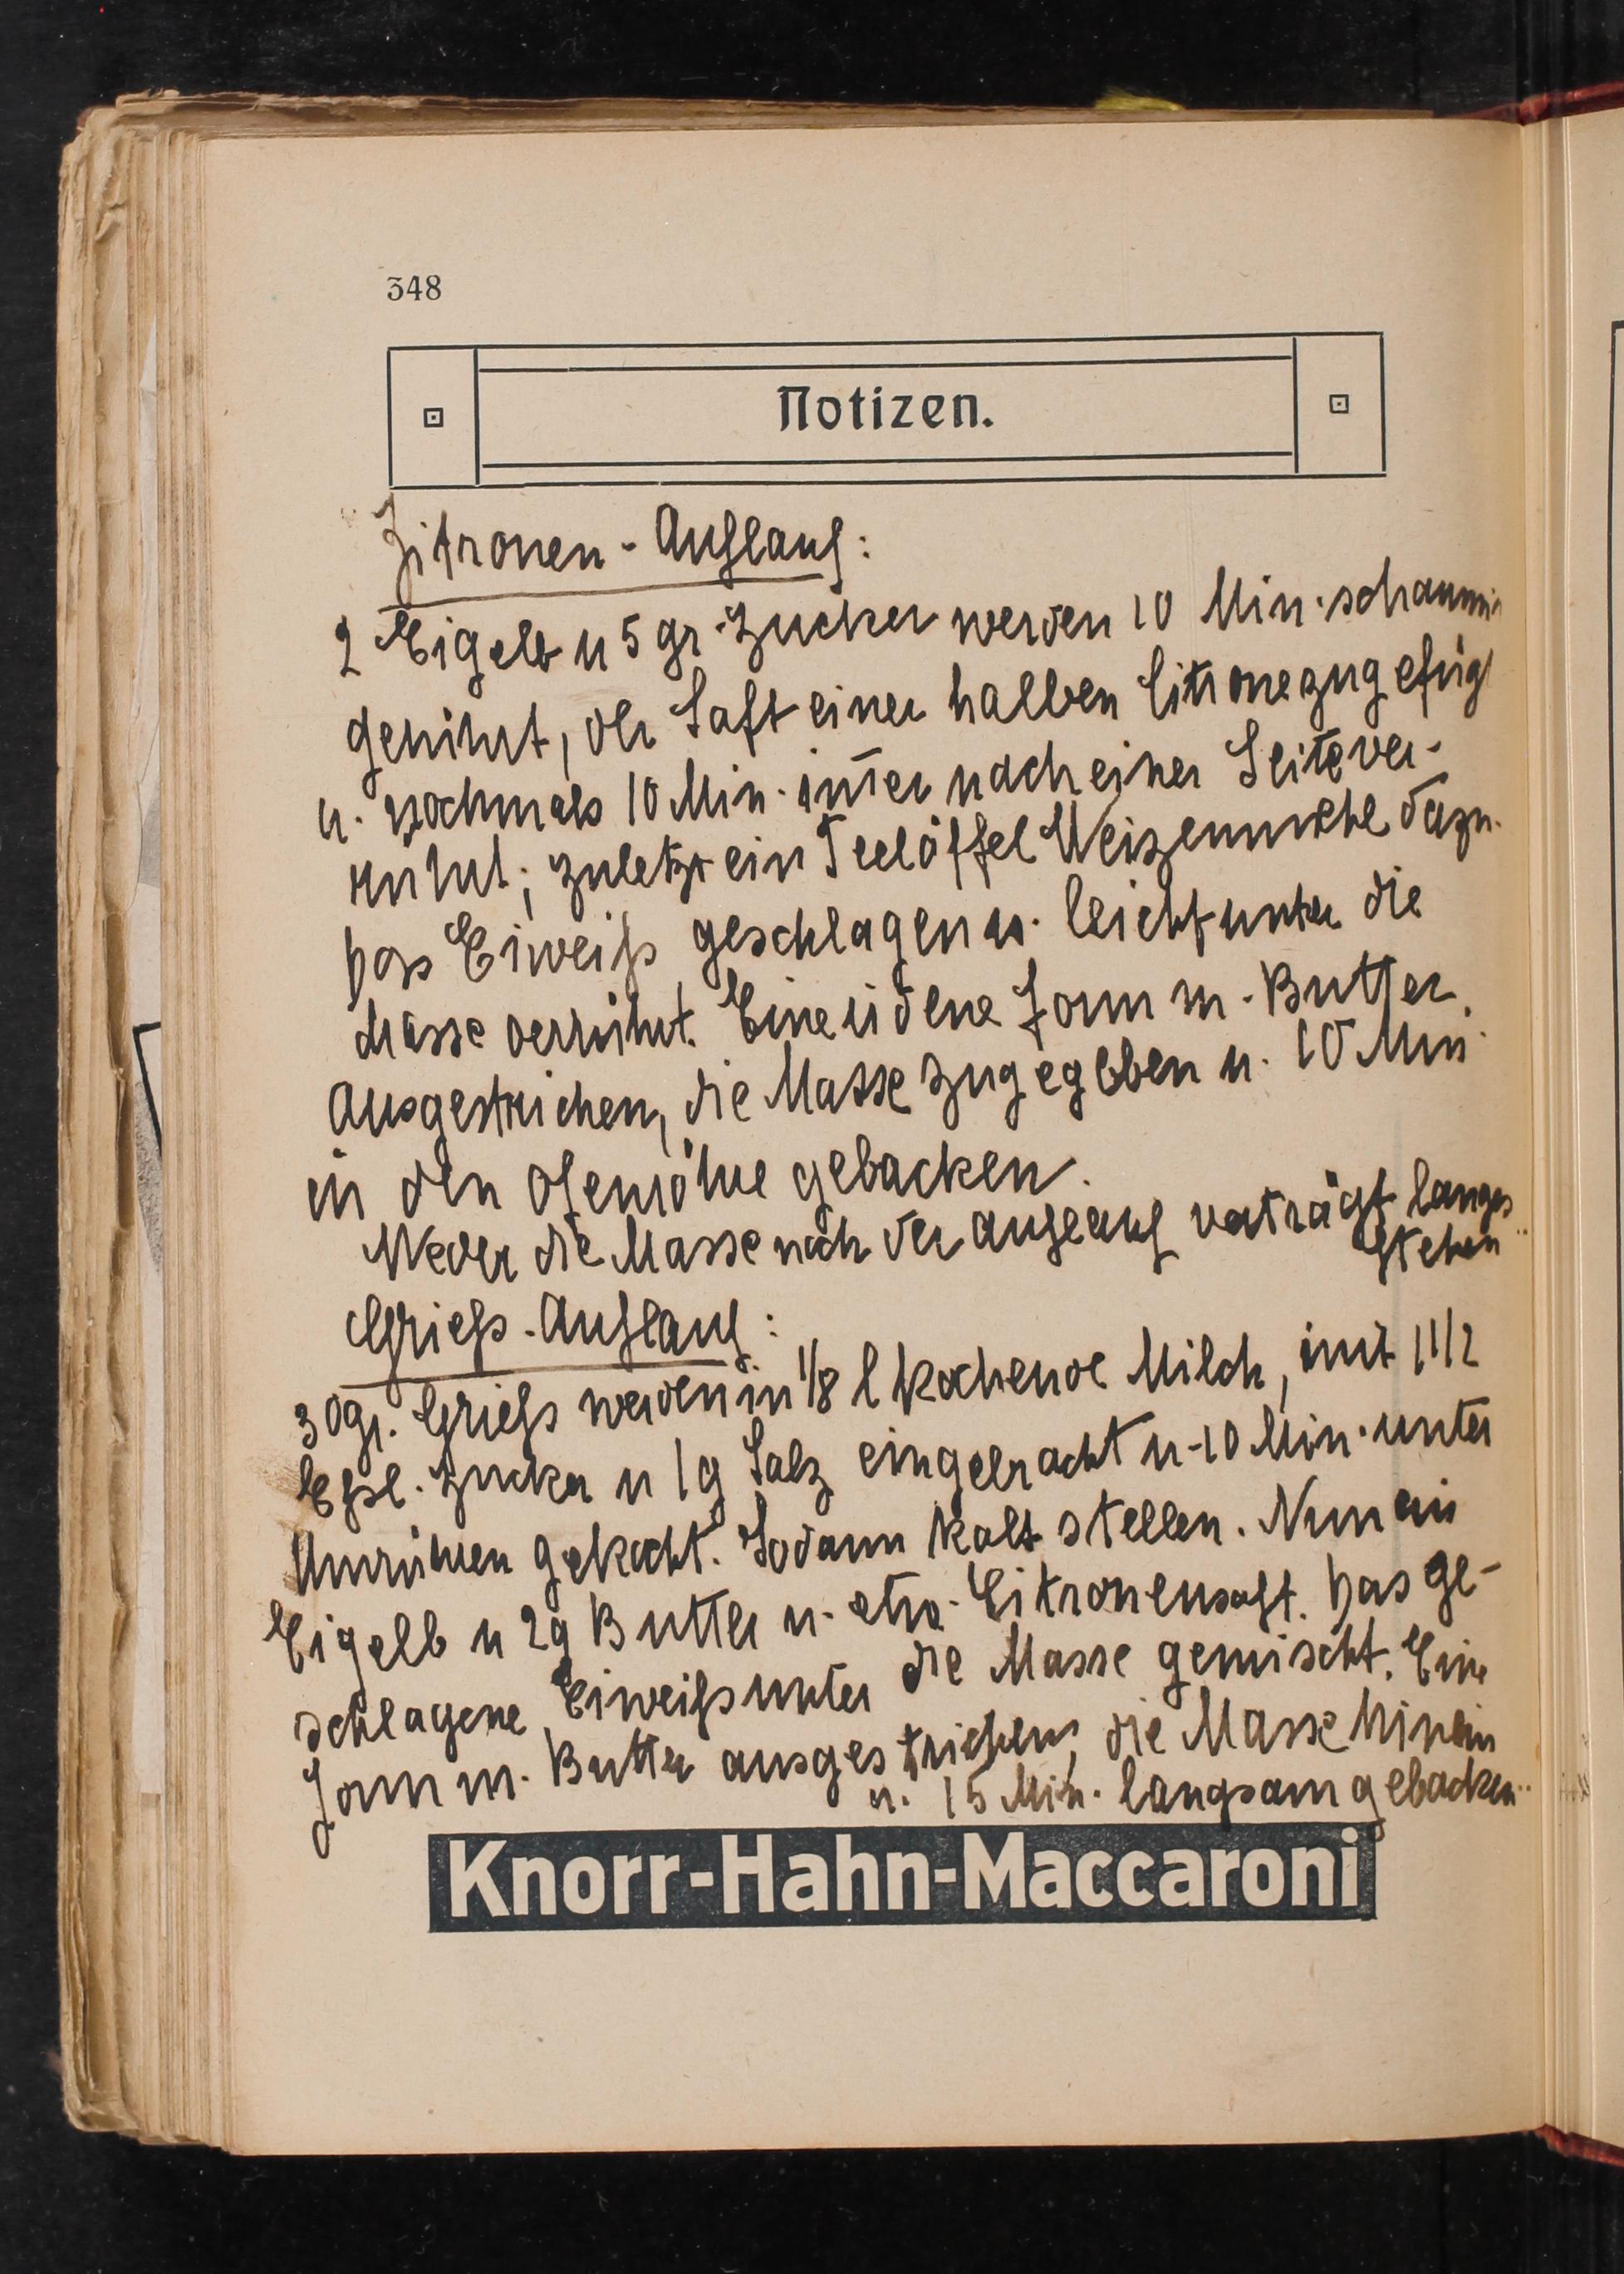 348
Notizen.
Zitronen-Auflauf:
2 Eigelb u 5 gr. Zucker werden 10 Min. schaumi
gerührt, der Saft einer halben Citrone zugefügt
u. nochmals 10 Min. im̅er nach einer Seite ver-
rührt; zuletzt ein Teelöffel Weizenmehl dazu.
Das Eiweiß geschlagen u. leicht unter die
Masse verrührt. Eine irdene Form m. Butter
ausgestrichen, die Masse zugegeben u. 10 Min.
in den Ofenröhre gebacken.
Weder die Masse noch der Auflauf verträgt langes
Stehen
Grieß-Auflauf:
30gr. Grieß werden in 1/8 l kochende Milch, mit 1 1/2
Eßl. Zucker u 1g Salz eingebracht u. 10 Min. unter
Umrühren gekocht. Sodann kalt stellen. Nun ein
Eigelb u 2g Butter u. etw. Citronensaft. Das ge-
schlagene Eiweiß unter die Masse gemischt. Eine
Form m. Butter ausgestrichen, die Masse hinein
u. 15 Min. langsam gebacken.
Knorr-Hahn-Maccaroni